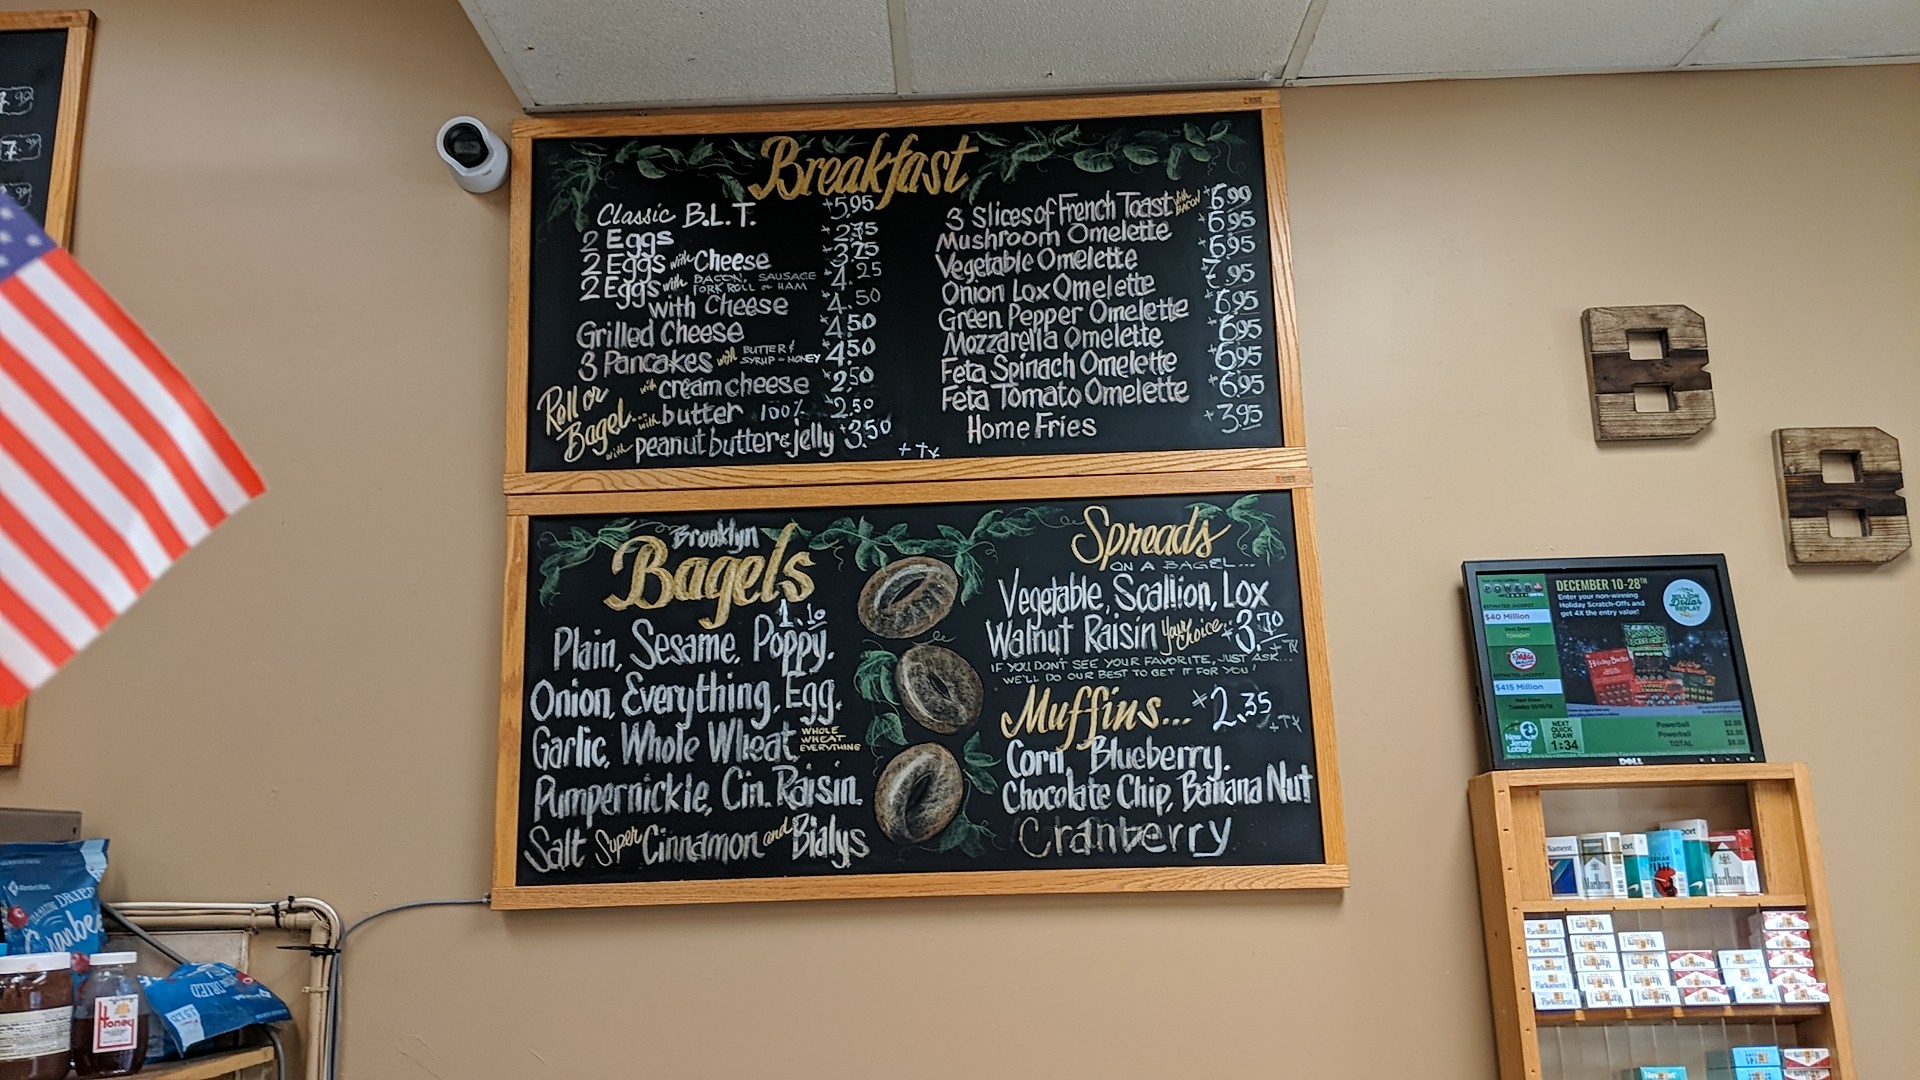 Breakfast
Classic B.L.T. +5.95
2 Eggs
2 Eggs with Cheese
2 Eggs with BACON, SAUSAGE PORK ROLL or HAM 4.25
with Cheese 4.50
Grilled Cheese 4.50
3 Pancakes with BUTTER & SYRUP - HONEY 4.50
Roll or Bagel...
with cream cheese 2.50
with butter 100% 2.50
with peanut butter & jelly +3.50
+ Tx
3 Slices of French Toast with BACON
Mushroom Omelette 6.95
Vegetable Omelette 6.95
Onion Lox Omelette
Green Pepper Omelette 6.95
Mozzarella Omelette 6.95
Feta Spinach Omelette 6.95
Feta Tomato Omelette 6.95
Home Fries +3.95
Brooklyn
Bagels
1.10
Plain, Sesame, Poppy,
Onion, Everything, Egg,
Garlic, Whole Wheat WHOLE WHEAT EVERYTHING
Pumpernickle, Cin. Raisin
Salt Super Cinnamon and Bialys
Spreads
ON A BAGEL...
Vegetable, Scallion, Lox
Walnut Raisin Your Choice... +3.70
+ Tx
IF YOU DON'T SEE YOUR FAVORITE, JUST ASK...
WE'LL DO OUR BEST TO GET IT FOR YOU!
Muffins... +2.35
+ Tx
Corn, Blueberry,
Chocolate Chip, Banana Nut
Cranberry
B
B
DECEMBER 10-28TH
Enter your non-winning
Holiday Scratch-Offs and
get 4X the entry value!
ESTIMATED JACKPOT
$40 Million
TONIGHT
ESTIMATED JACKPOT
$415 Million
New Jersey Lottery
NEXT QUICK DRAW
1:34
Powerball $2.00
Powerball $2.00
TOTAL
DELL
Marlboro
Marlboro
Parkament
DRIED
Honey